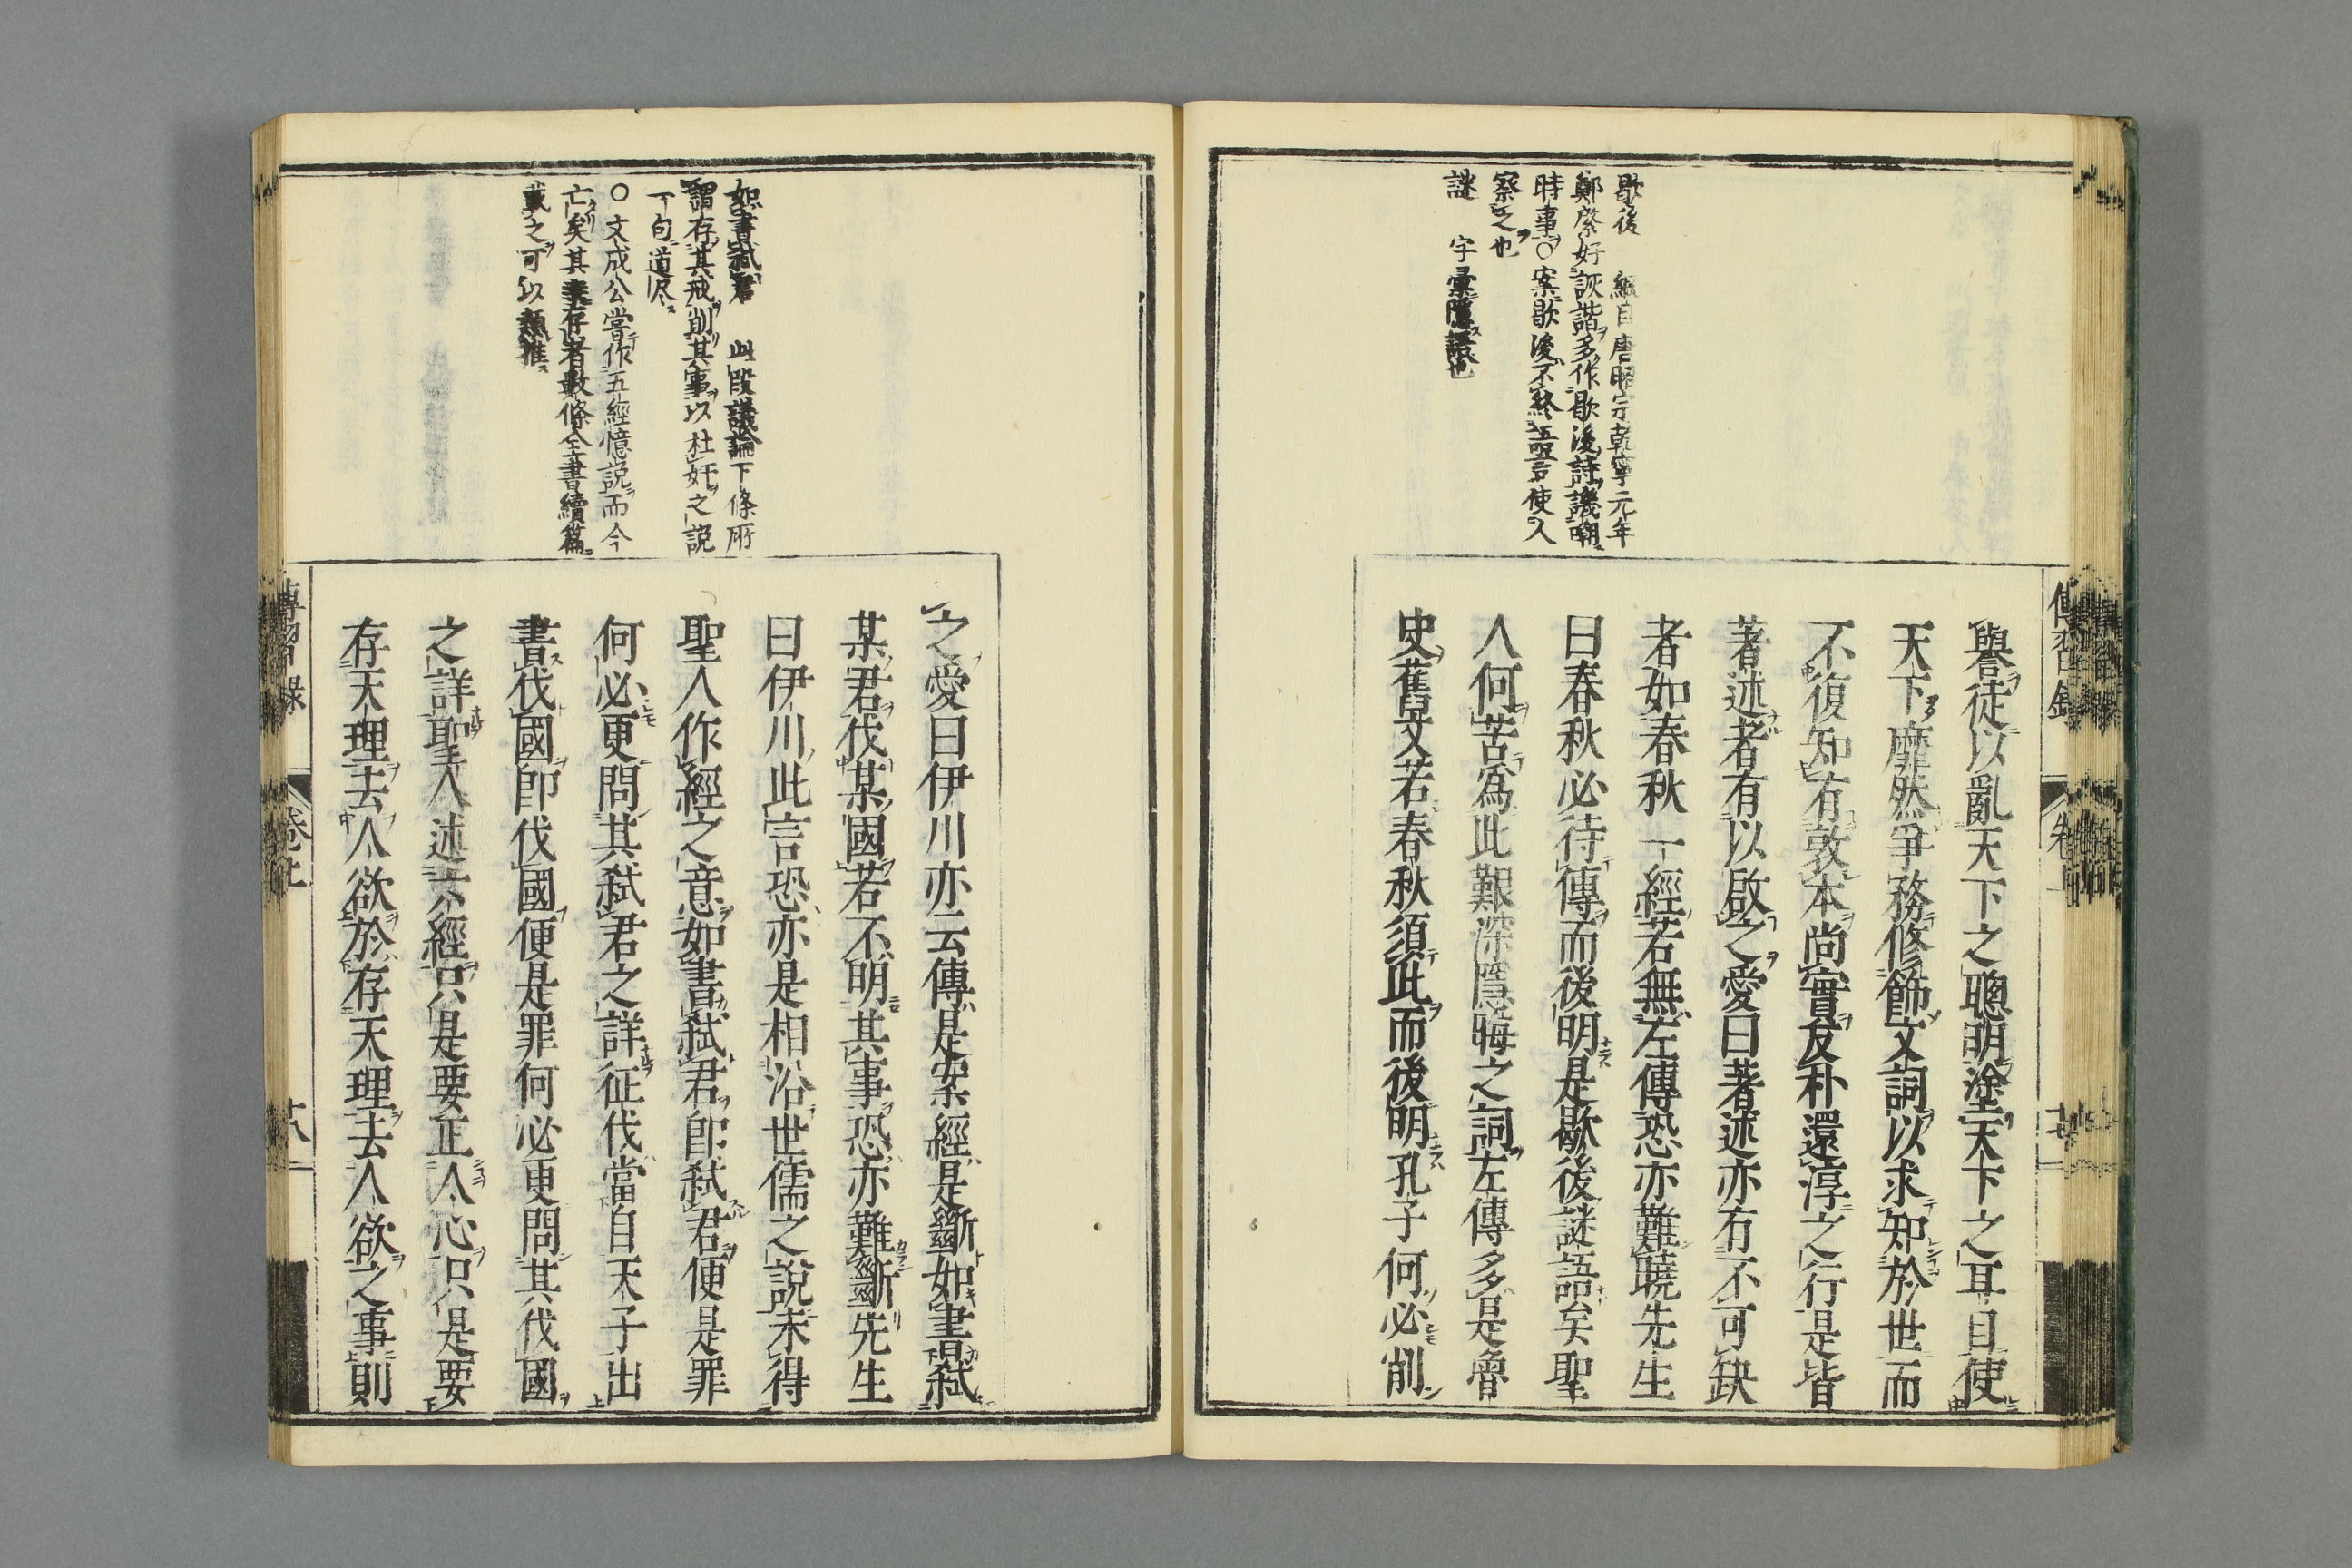 歇後 綱目唐昭宗乾寧元年
鄭綮好詼諧多作歇後詩譏嘲
時事○案歇後不終語言使人
察之也
謎 字彙隱語也
譽徒以亂天下之聰明塗天下之耳目使
天下靡然爭務修飾文詞以求知於世而
不復知有敦本尚實反朴還淳之行是皆
著述者有以啟之愛曰著述亦有不可缺
者如春秋一經若無左傳恐亦難曉先生
曰春秋必待傳而後明是歇後謎語矣聖
人何苦為此艱深隱晦之詞左傳多是魯
史舊文若春秋須此而後明孔子何必削
如書弒君 此段議論下條所
謂存其戒削其事以杜奸之說
一句道尽
○文成公嘗作五經憶說而今
亡矣其存者數條全書續篇
載之可以類推
之愛曰伊川亦云傳是案經是斷如書弒
某君伐某國若不明其事恐亦難斷先生
曰伊川此言恐亦是相沿世儒之說未得
聖人作經之意如書弒君即弒君便是罪
何必更問其弒君之詳征伐當自天子出
書伐國即伐國便是罪何必更問其伐國
之詳聖人述六經只是要正人心只是要
存天理去人欲於存天理去人欲之事則
傳習錄 卷上 十八